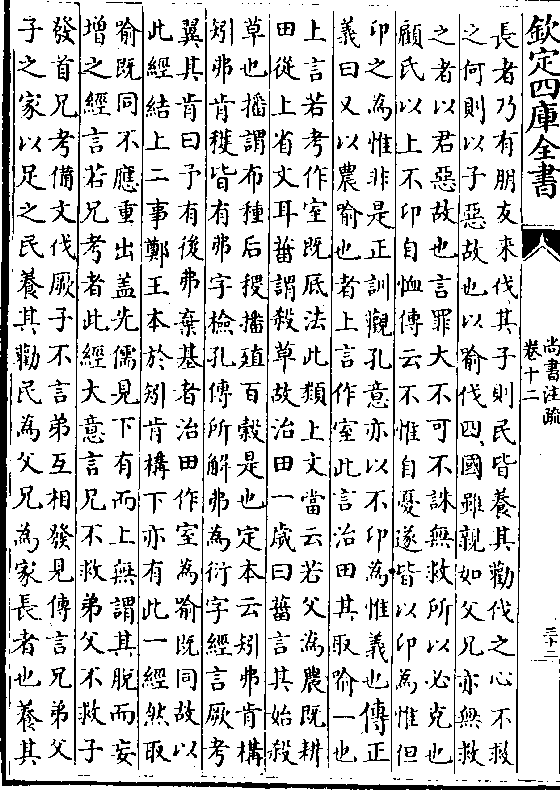 欽定四庫全書
尚書注疏
卷十二
三十二
長者乃有朋友來伐其子則民皆養其勸伐之心不救
之何則以子惡故也以喻伐四國雖親如父兄亦無救
之者以君惡故也言罪大不可不誅無救所以必克也
顧氏以上不卬自恤傳云不惟自憂遂皆以卬為惟但
卬之為惟非是正訓觀孔意亦以不卬為惟義也傳正
義曰又以農喻也者上言作室此言治田其取喻一也
上言若考作室既厎法此類上文當云若父為農既耕
田從上省文耳菑謂殺草故治田一歲曰菑言其始殺
草也播謂布種后稷播殖百穀是也定本云矧弗肯構
矧弗肯穫皆有弗字檢孔傳所解弗為衍字經言厥考
翼其肯曰予有後弗棄基者治田作室為喻既同故以
此經結上二事鄭王本於矧肯構下亦有此一經然取
喻既同不應重出盖先儒見下有而上無謂其脫而妄
增之經言若兄考者此經大意言兄不救弟父不救子
發首兄考備文伐厥子不言弟互相發見傳言兄弟父
子之家以足之民養其勸民為父兄為家長者也養其